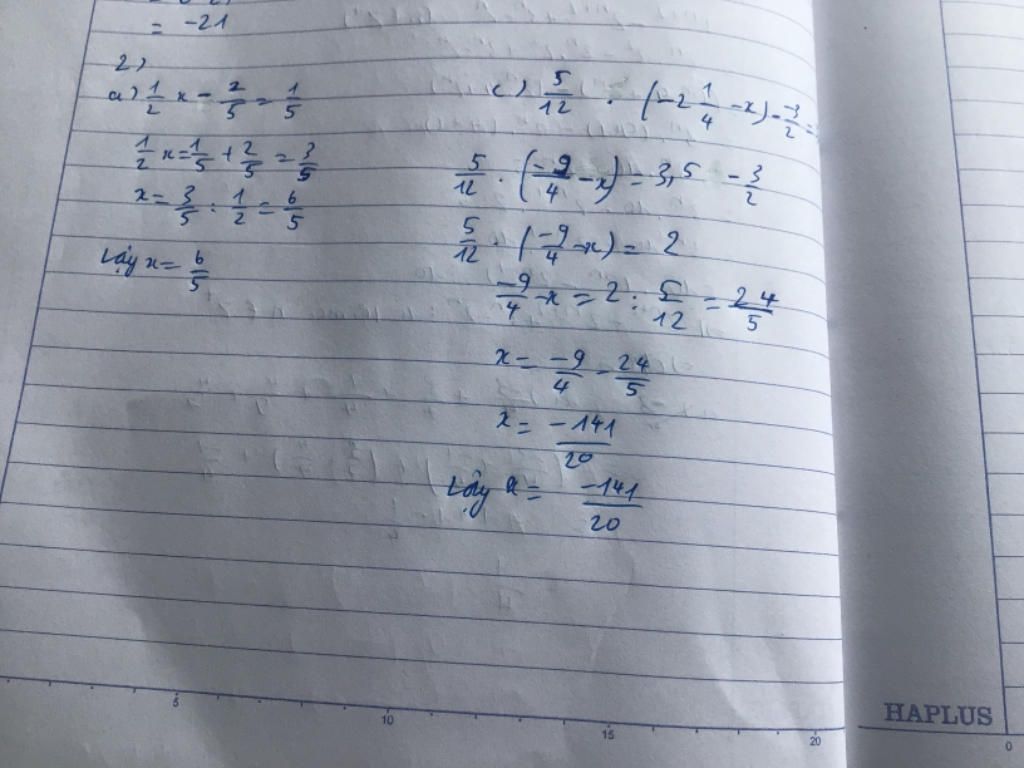 = -21
2)
a) 1/2 x - 2/5 = 1/5
1/2 x = 1/5 + 2/5 = 3/5
x = 3/5 : 1/2 = 6/5
Vậy x = 6/5
c) 5/12 . (-2 1/4 - x) - -3/2 =
5/12 . (-9/4 - x) = 3,5 - 3/2
5/12 . (-9/4 - x) = 2
-9/4 - x = 2 : 5/12 = 24/5
x = -9/4 - 24/5
x = -141/20
Vậy x = -141/20
5 10 15 20
HAPLUS
0